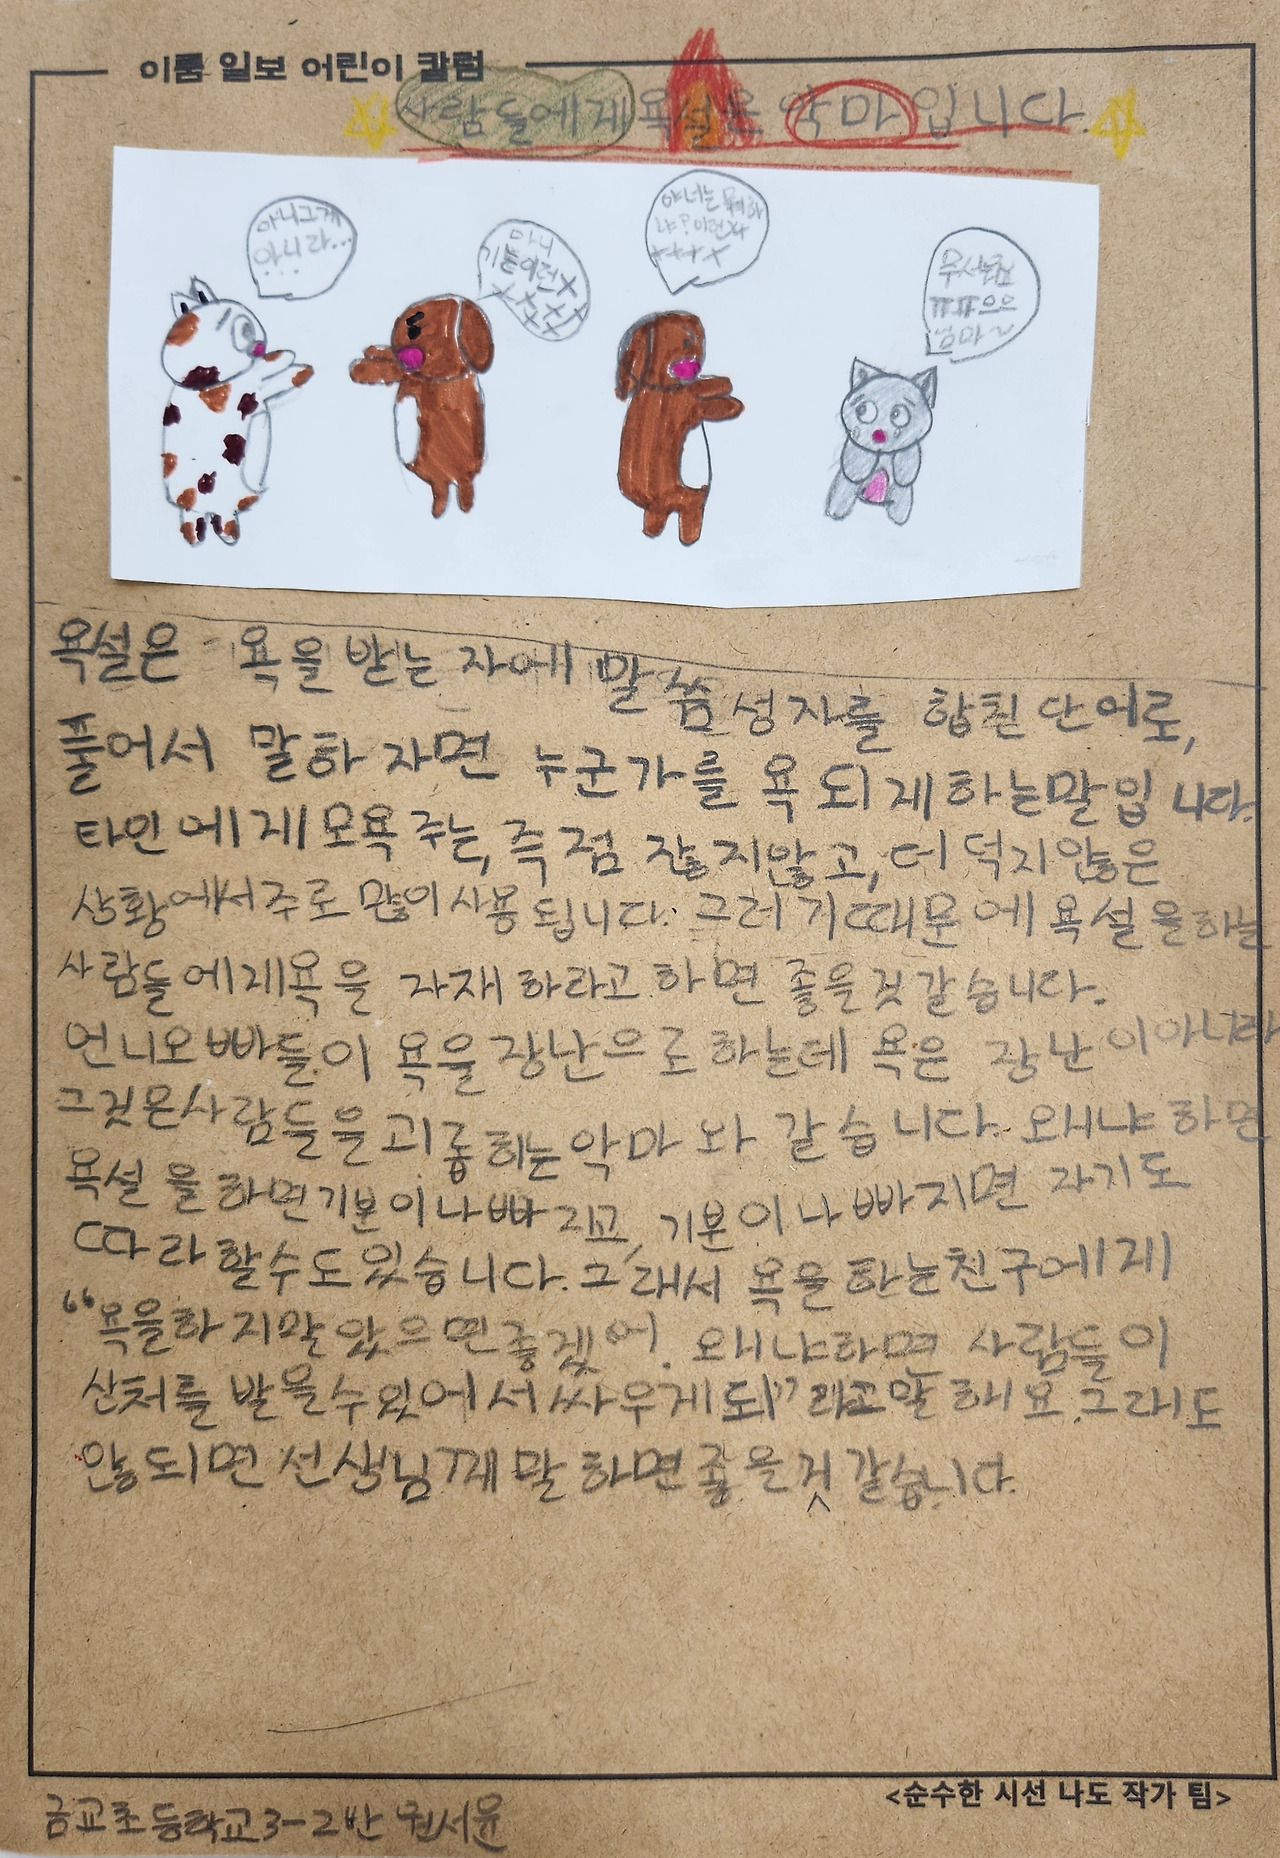 이룸 일보 어린이 칼럼
사람들에게 욕설은 악마입니다.
아니그게
아니라...
...
기분이런X
XXXX
XXX
야너는 뭐하
냐? 이런
XXXX
ㅠㅠ으으
엄마~
욕설은 욕을 받는 자에 말씀 성자를 합친 단어로,
풀어서 말하 자면 누군가를 욕 되게하는말입니다.
타인에게모욕주는, 즉 점 잖지않고, 더 덕지않은
상황에서주로 많이사용 됩니다. 그러기때문에 욕설을하는
사람들에게욕을 자재 하라고 하면 좋을것같습니다.
언니오빠들이 욕을 장난으로 하는데 욕은 장난이아니라
그것은사람들을 괴롭히는악마와 같습니다. 왜냐하면
욕설을하면기분이나빠지고, 기분이나빠지면 자기도
따라할수도있습니다. 그래서 욕을 하는친구에게
“욕을하지말았으면좋겠어. 왜냐하면 사람들이
산처를 받을수있어서싸우게되" 라고말해요. 그래도
않되면 선생님께 말하면좋을것같습니다.
<순수한 시선 나도 작가 팀>
금교초등학교3-2반 권서윤